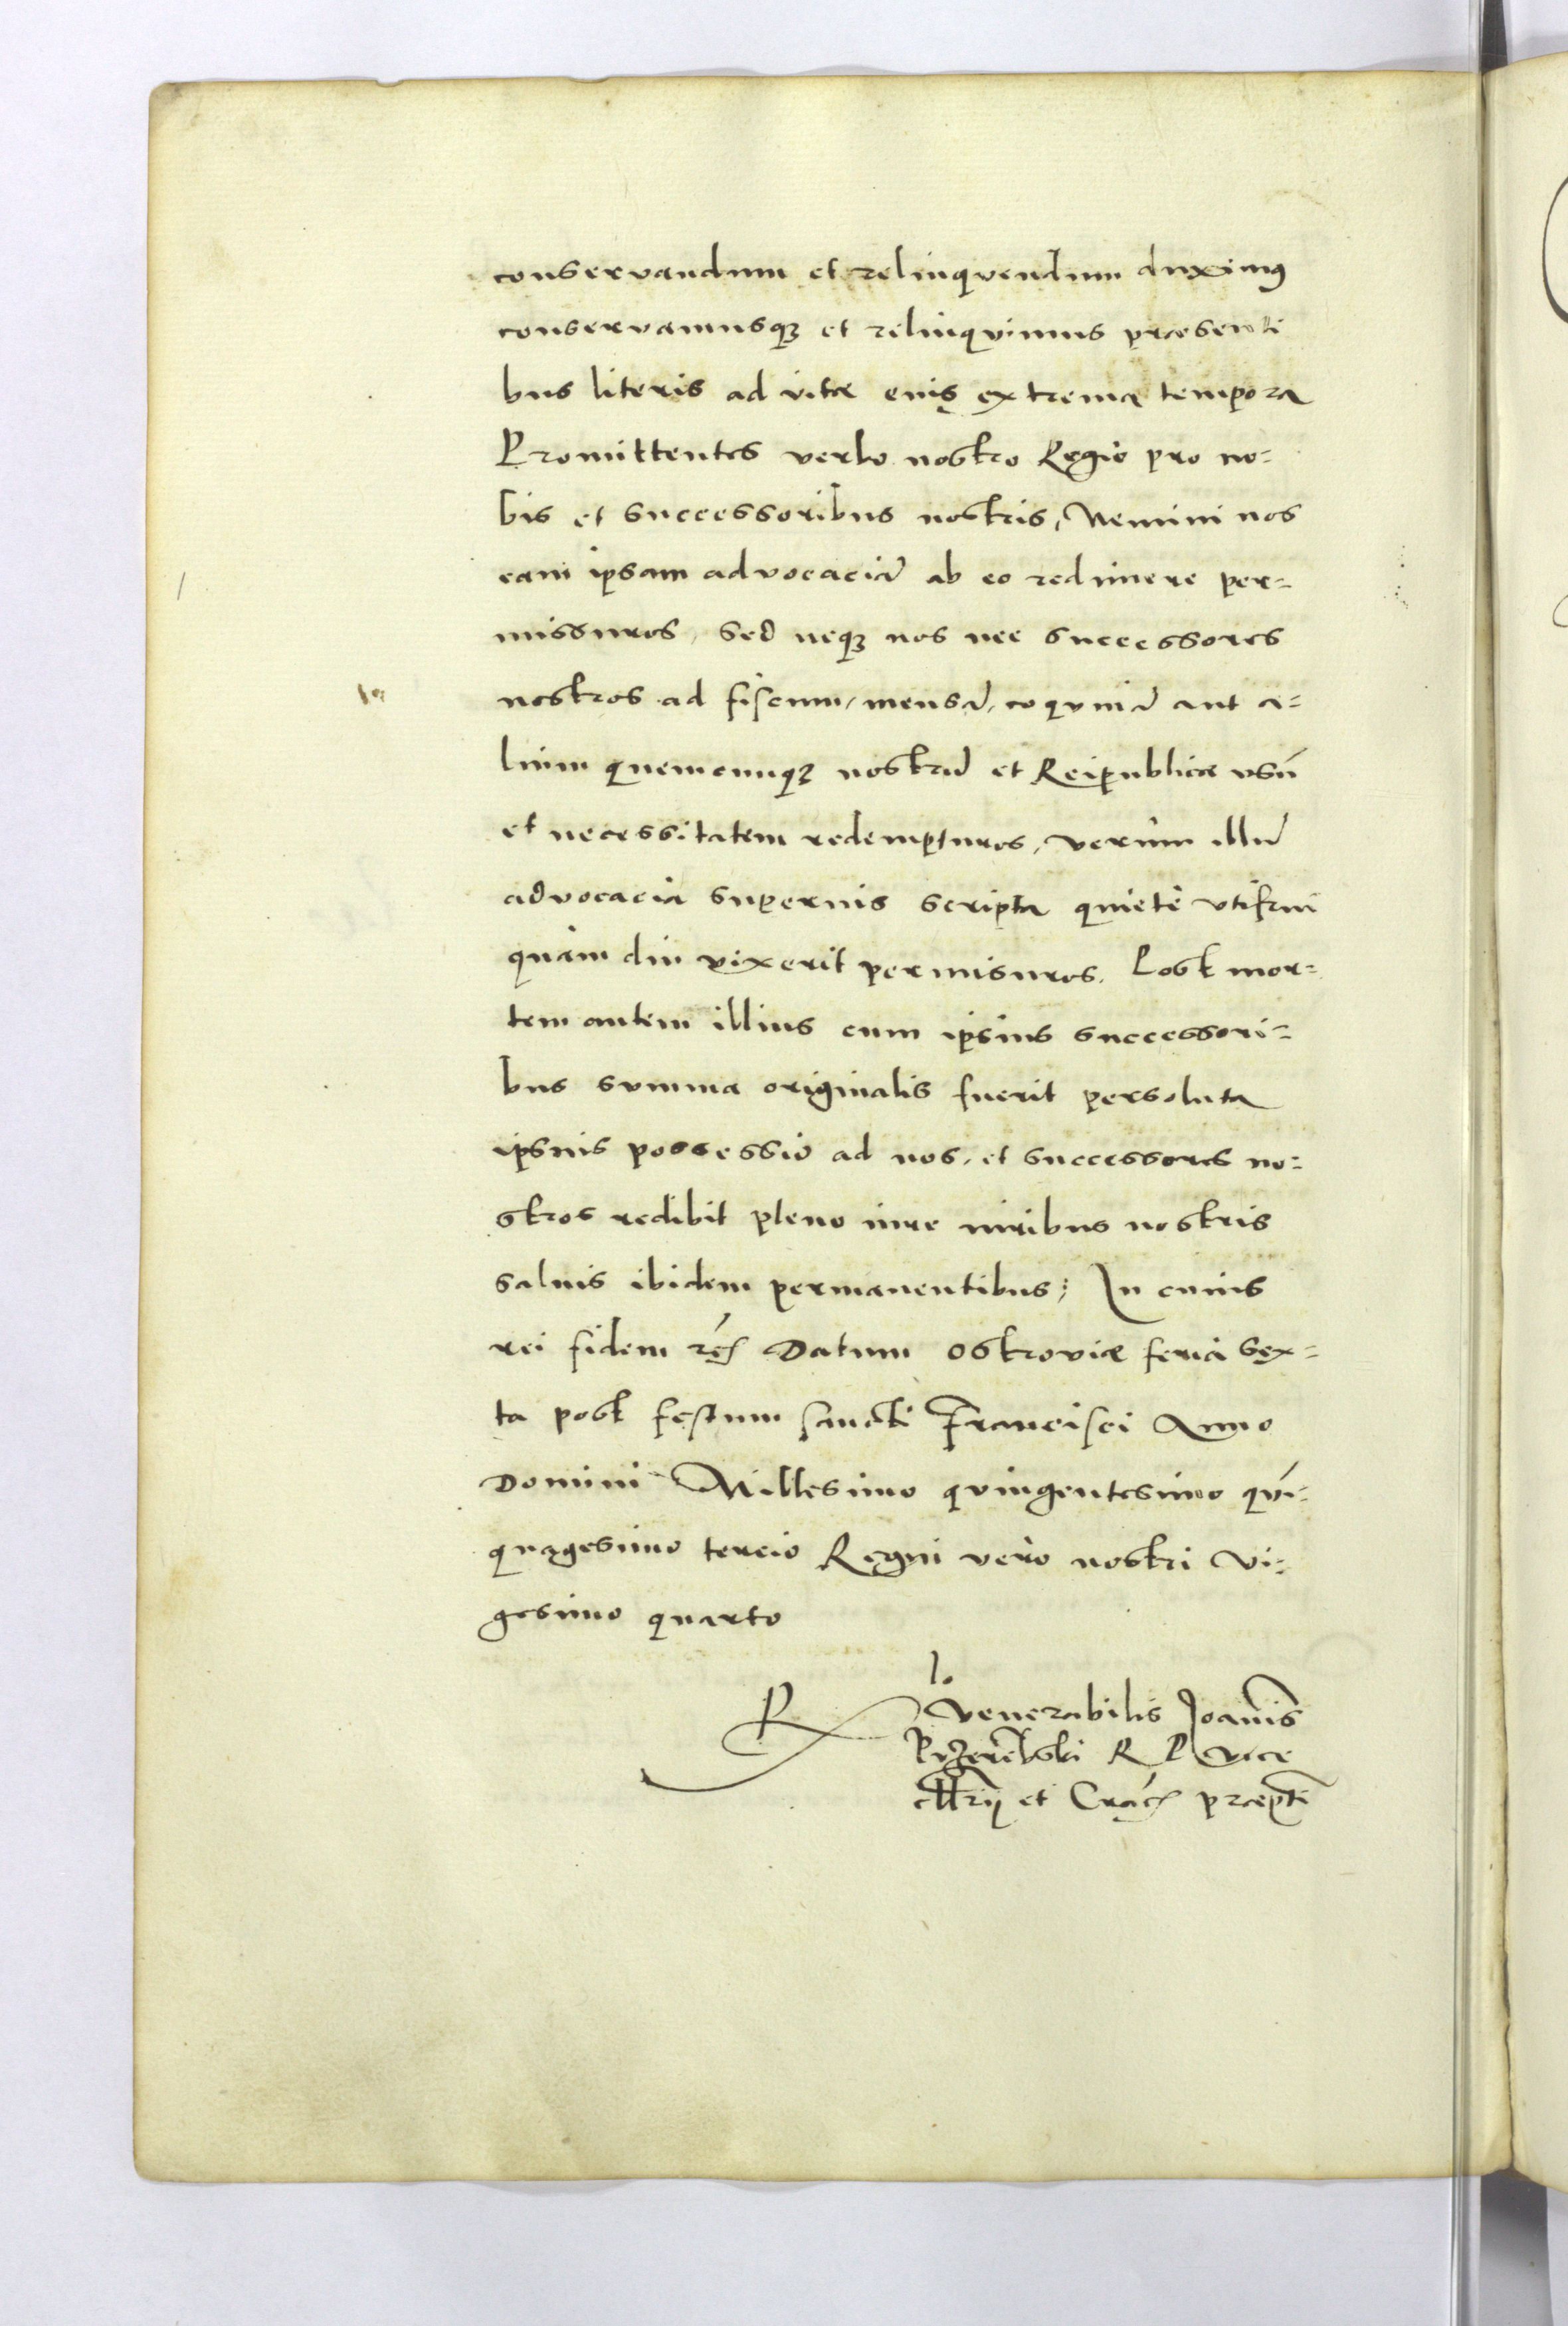 conservandum et relinqvendum duximus
conservamusq3 et relinqvimus præsenti
bus literis ad vitæ euis extrema tempora
Promittentes verbo nostro Regio pro no=
bis et successoribus nostris, Nemini nos
eam ipsam advocaciã ab eo redimere per=
missuros, Sed neq3 nos nec successores
nostros ad fiscum, mensã, coqvinã aut a=
lium quemcunq3 nostrũ et Reipublicæ vsũ
et necessitatem redempturos, verùm illũ
advocacia supernis scripta quiete vtifrui
quàm diu vixerit permisuros. Post mor=
tem autem illius cum ipsius successori=
bus summa originalis fuerit persoluta
ipsius possessio ad nos, et successores no=
stros redibit pleno iure iuribus nostris
saluis ibidem permanentibus; In cuius
rei fidem rẽ Datum Ostroviæ feria sex=
ta post festum sancti Francisci Anno
Domini Millesimo qvingentesimo qvi=
quagesimo tercio Regni verò nostri vi=
gesimo quarto
R Venerabilis Joannis
R P Vice
cllrij et Crac̃ præpti